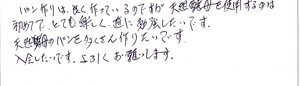 パン作りは、良く作っているのですが 天然酵母を使用するのは
初めてで、とても楽しく、逆に勉強したいです。
天然酵母のパンを多くさん作りたいです。
入会したいです。よろしくお願いします。